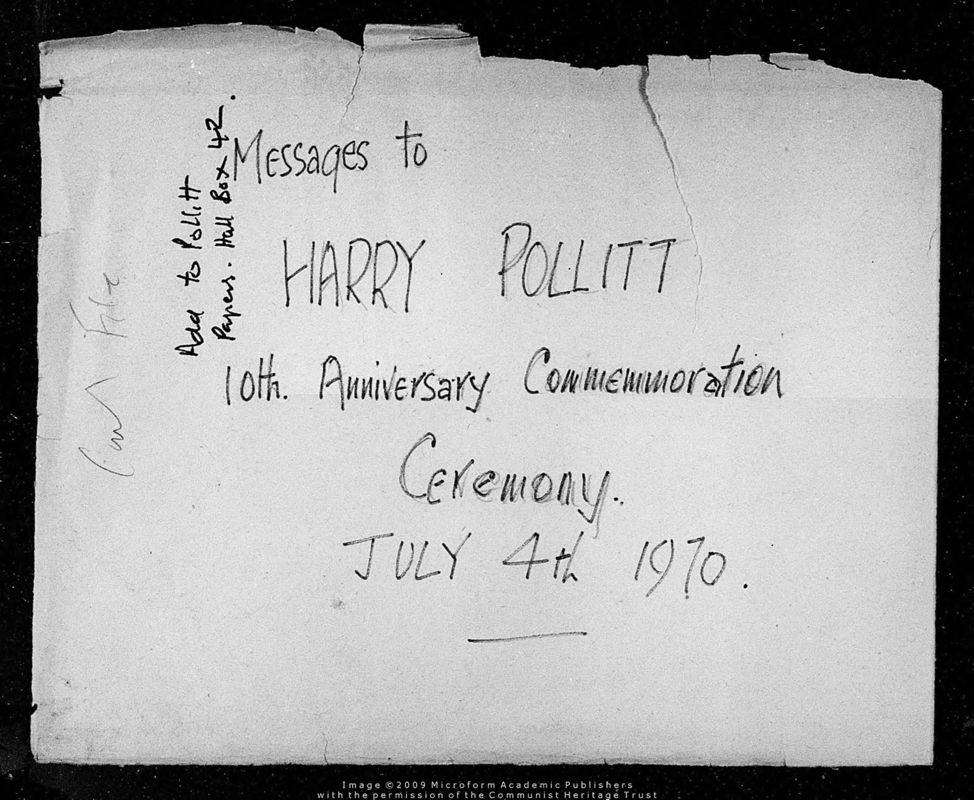 Messages to
HARRY POLLITT
10th. Anniversary Commemmoration
Ceremony.
JULY 4th 1970.
Add to Pollitt
Papers. Hall Box 42.
Image ©2009 Microform Academic Publishers
with the permission of the Communist Heritage Trust